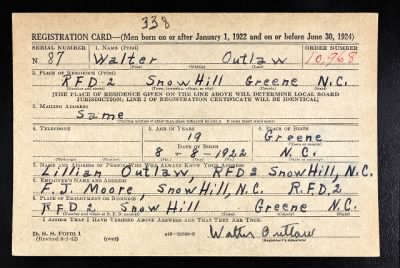 338
REGISTRATION CARD—(Men born on or after January 1, 1922 and on or before June 30, 1924)
SERIAL NUMBER 1. NAME (Print) ORDER NUMBER
N 87 Walter Outlaw 10,968
2. PLACE OF RESIDENCE (Print)
RFD-2 Snow Hill Greene N.C.
(Number and street) (Town, township, village, or city) (County) (State)
[THE PLACE OF RESIDENCE GIVEN ON THE LINE ABOVE WILL DETERMINE LOCAL BOARD
JURISDICTION; LINE 2 OF REGISTRATION CERTIFICATE WILL BE IDENTICAL]
3. MAILING ADDRESS
Same
4. TELEPHONE 5. AGE IN YEARS 6. PLACE OF BIRTH
19 Greene
DATE OF BIRTH
8-8-1922 N.C.
7. NAME AND ADDRESS OF PERSON WHO WILL ALWAYS KNOW YOUR ADDRESS
Lillian Outlaw, RFD2 Snow Hill, N.C.
8. EMPLOYER'S NAME AND ADDRESS
F. J. Moore, Snow Hill, N.C. R.F.D.2
9. PLACE OF EMPLOYMENT OR BUSINESS
RFD2, Snow Hill Greene N.C.
(Number and street or R. F. D. number) (Town) (County) (State)
I AFFIRM THAT I HAVE VERIFIED ABOVE ANSWERS AND THAT THEY ARE TRUE.
D. S. S. Form 1 (over) Walter Outlaw
(Registrant's signature)